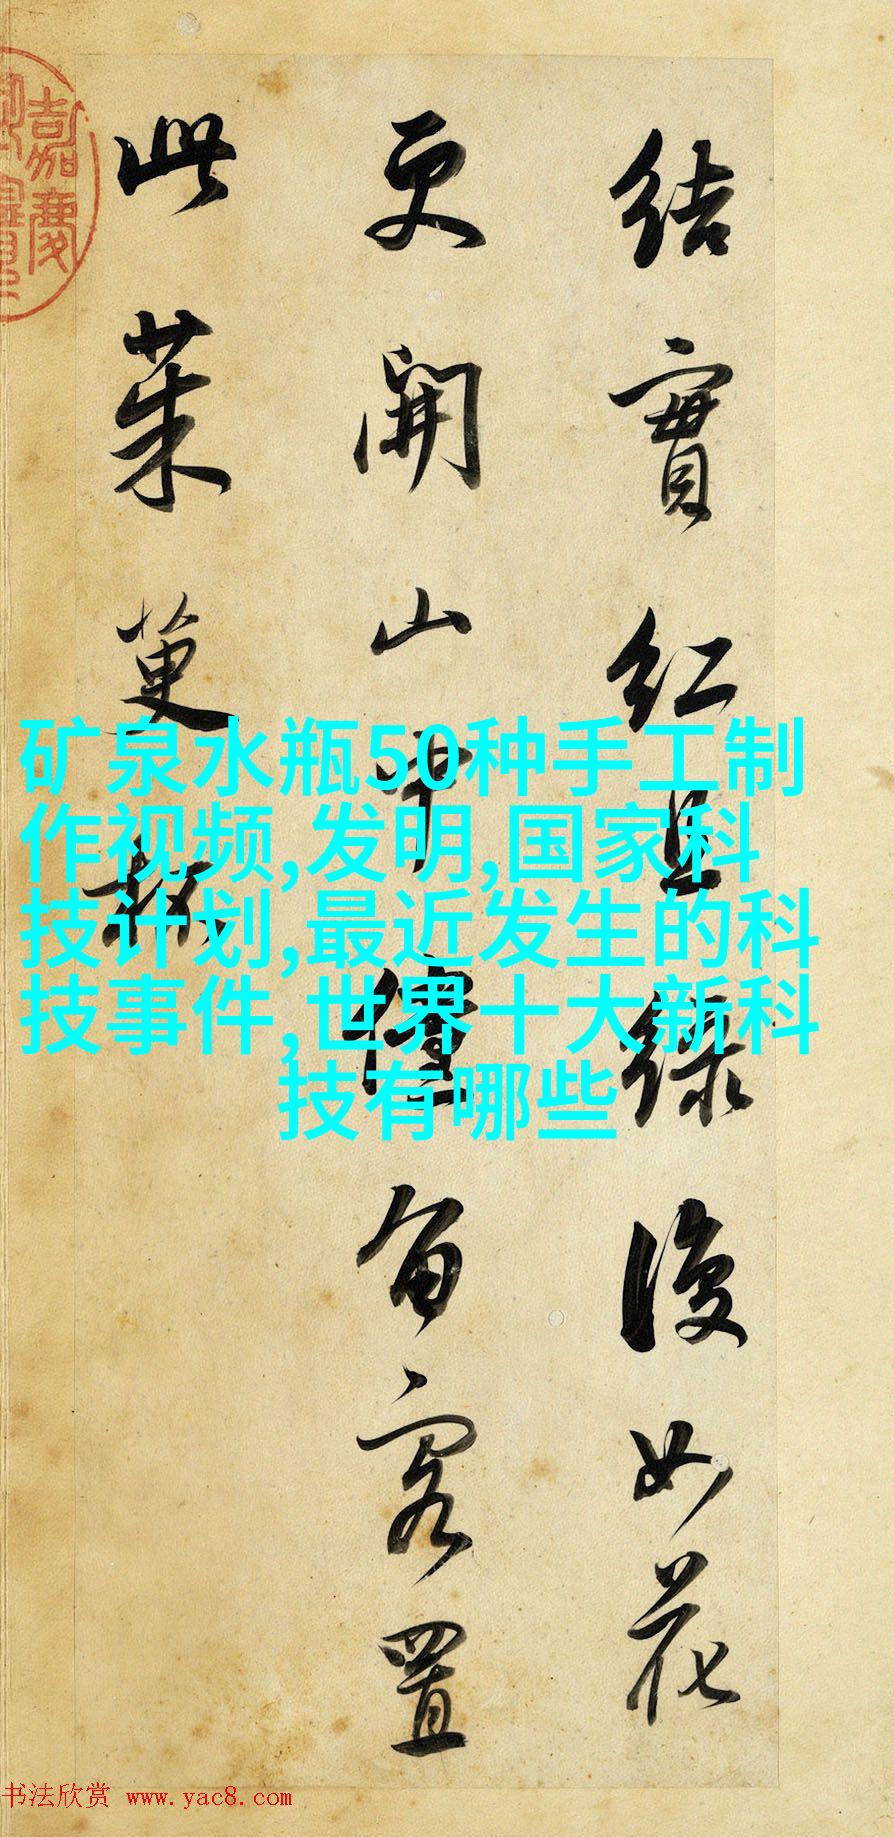 結實紅且綠復如花
更開山中儻留客置
此茱萸杯
嘉慶
矿泉水瓶50种手工制
作视频,发明,国家科
技计划,最近发生的科
技事件,世界十大新科
技有哪些
书法欣赏 www.yac8.com